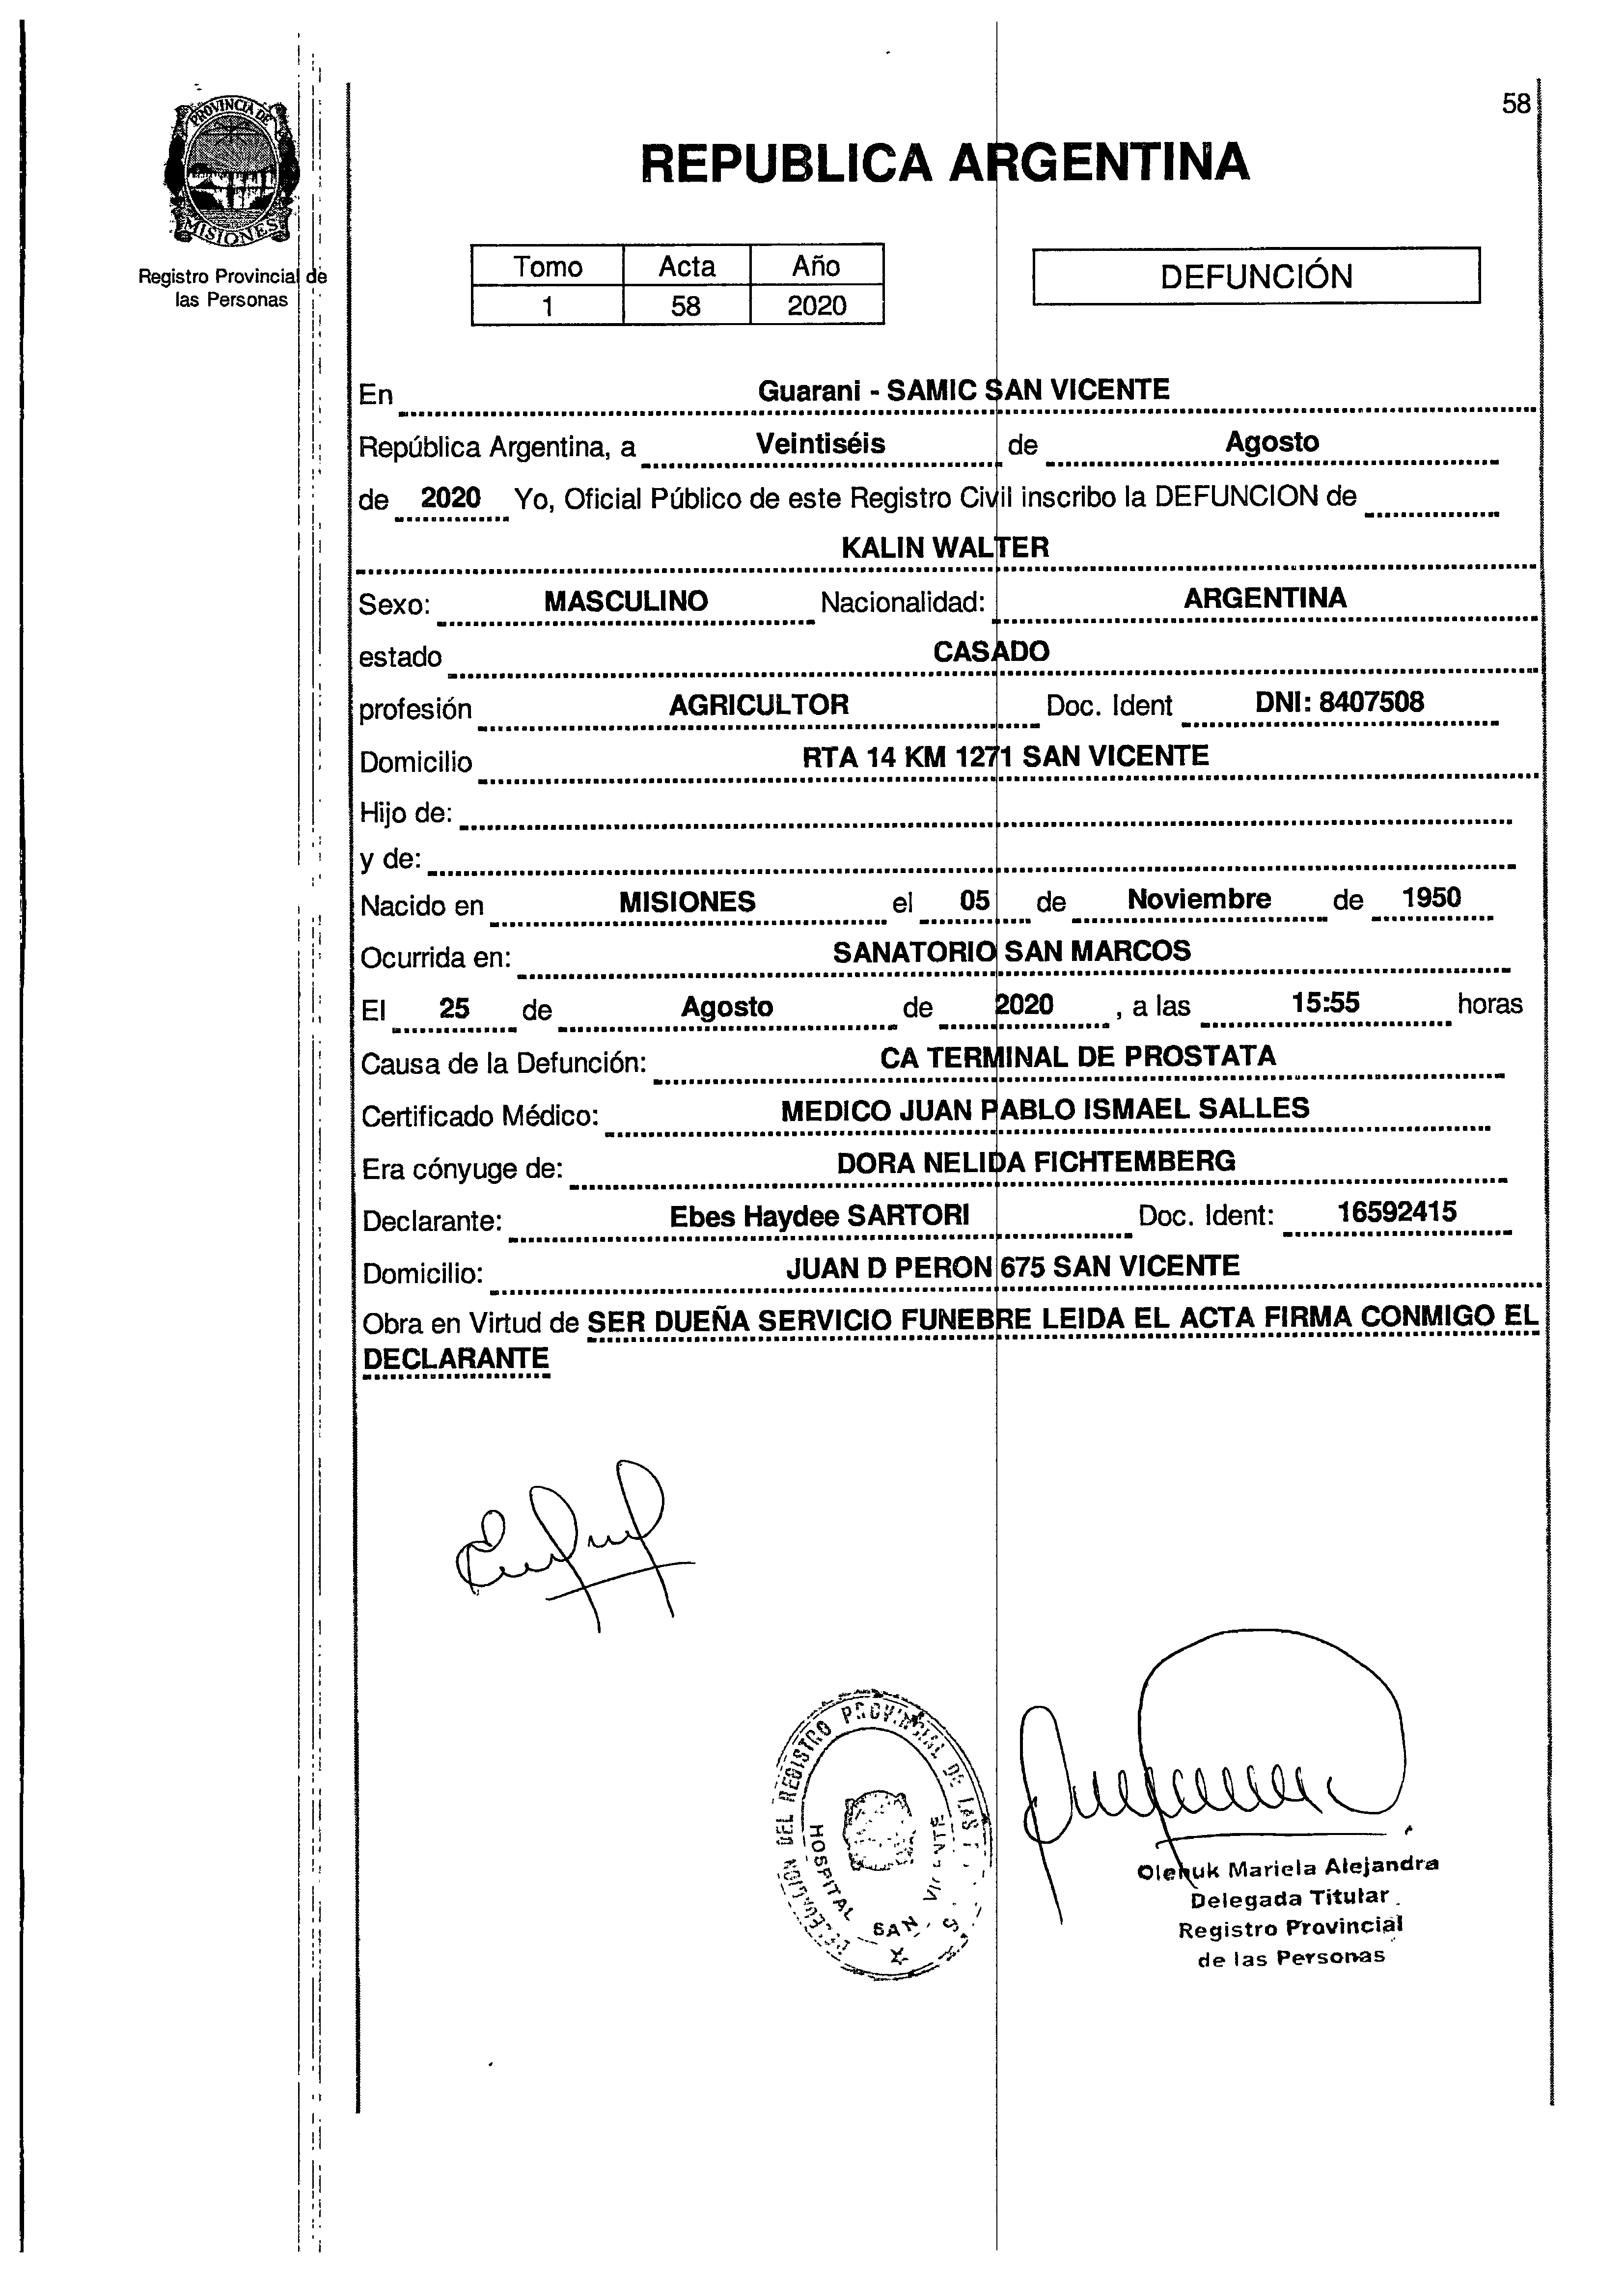 58
PROVINCIA DE
MISIONES
Registro Provincial de
las Personas
REPUBLICA ARGENTINA
Tomo Acta Año
1 58 2020
DEFUNCIÓN
En Guarani - SAMIC SAN VICENTE
República Argentina, a Veintiséis de Agosto
de 2020 Yo, Oficial Público de este Registro Civil inscribo la DEFUNCION de
KALIN WALTER
Sexo: MASCULINO Nacionalidad: ARGENTINA
estado CASADO
profesión AGRICULTOR Doc. Ident DNI: 8407508
Domicilio RTA 14 KM 1271 SAN VICENTE
Hijo de:
y de:
Nacido en MISIONES el 05 de Noviembre de 1950
Ocurrida en: SANATORIO SAN MARCOS
El 25 de Agosto de 2020 , a las 15:55 horas
Causa de la Defunción: CA TERMINAL DE PROSTATA
Certificado Médico: MEDICO JUAN PABLO ISMAEL SALLES
Era cónyuge de: DORA NELIDA FICHTEMBERG
Declarante: Ebes Haydee SARTORI Doc. Ident: 16592415
Domicilio: JUAN D PERON 675 SAN VICENTE
Obra en Virtud de SER DUEÑA SERVICIO FUNEBRE LEIDA EL ACTA FIRMA CONMIGO EL
DECLARANTE
DELEGACION DEL REGISTRO PROVINCIAL DE LAS
HOSPITAL SAN VICENTE
Olenuk Mariela Alejandra
Delegada Titular
Registro Provincial
de las Personas